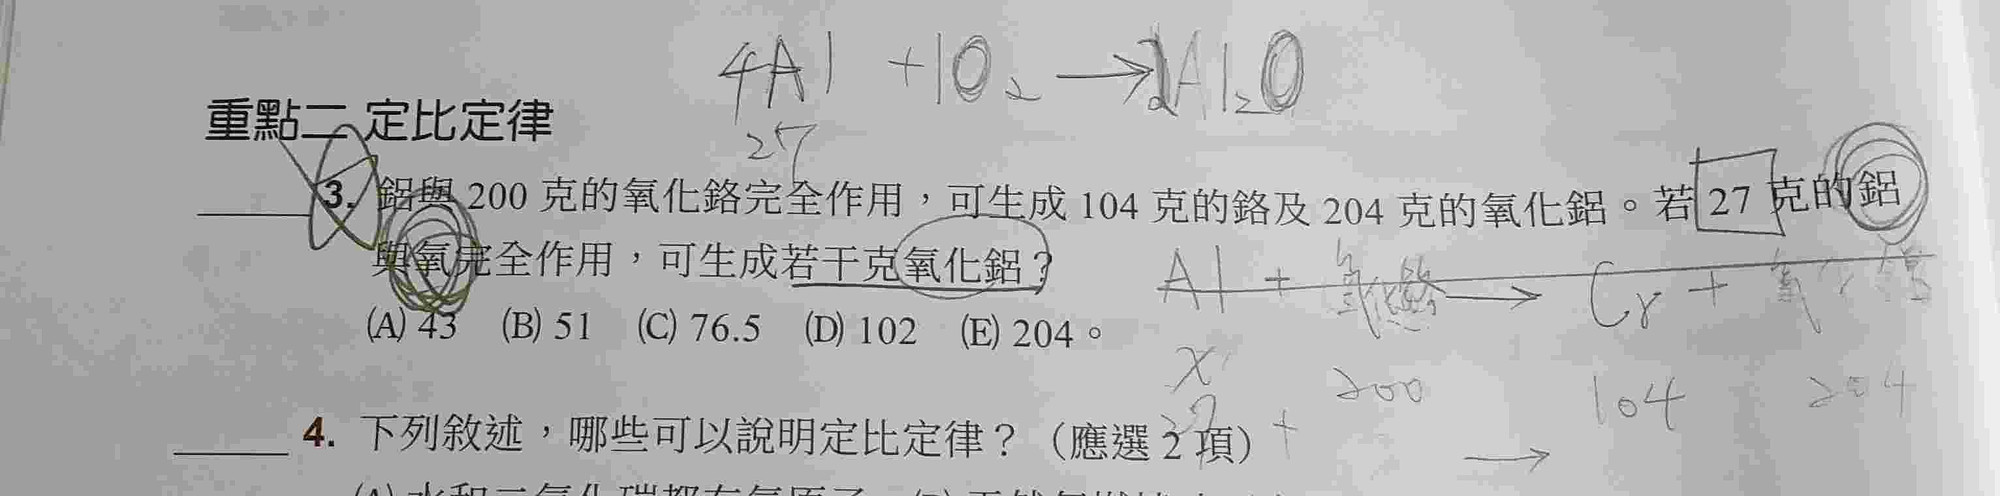 4Al + 1O₂ → 2Al₂O
27
重點二 定比定律
3. 鋁與 200 克的氧化鉻完全作用，可生成 104 克的鉻及 204 克的氧化鋁。若 27 克的鋁
與氧完全作用，可生成若干克氧化鋁？
Al + 氧化鉻 → Cr + 氧化鋁
(A) 43 (B) 51 (C) 76.5 (D) 102 (E) 204。
X 200 104 204
27 + →
4. 下列敘述，哪些可以說明定比定律？（應選 2 項）